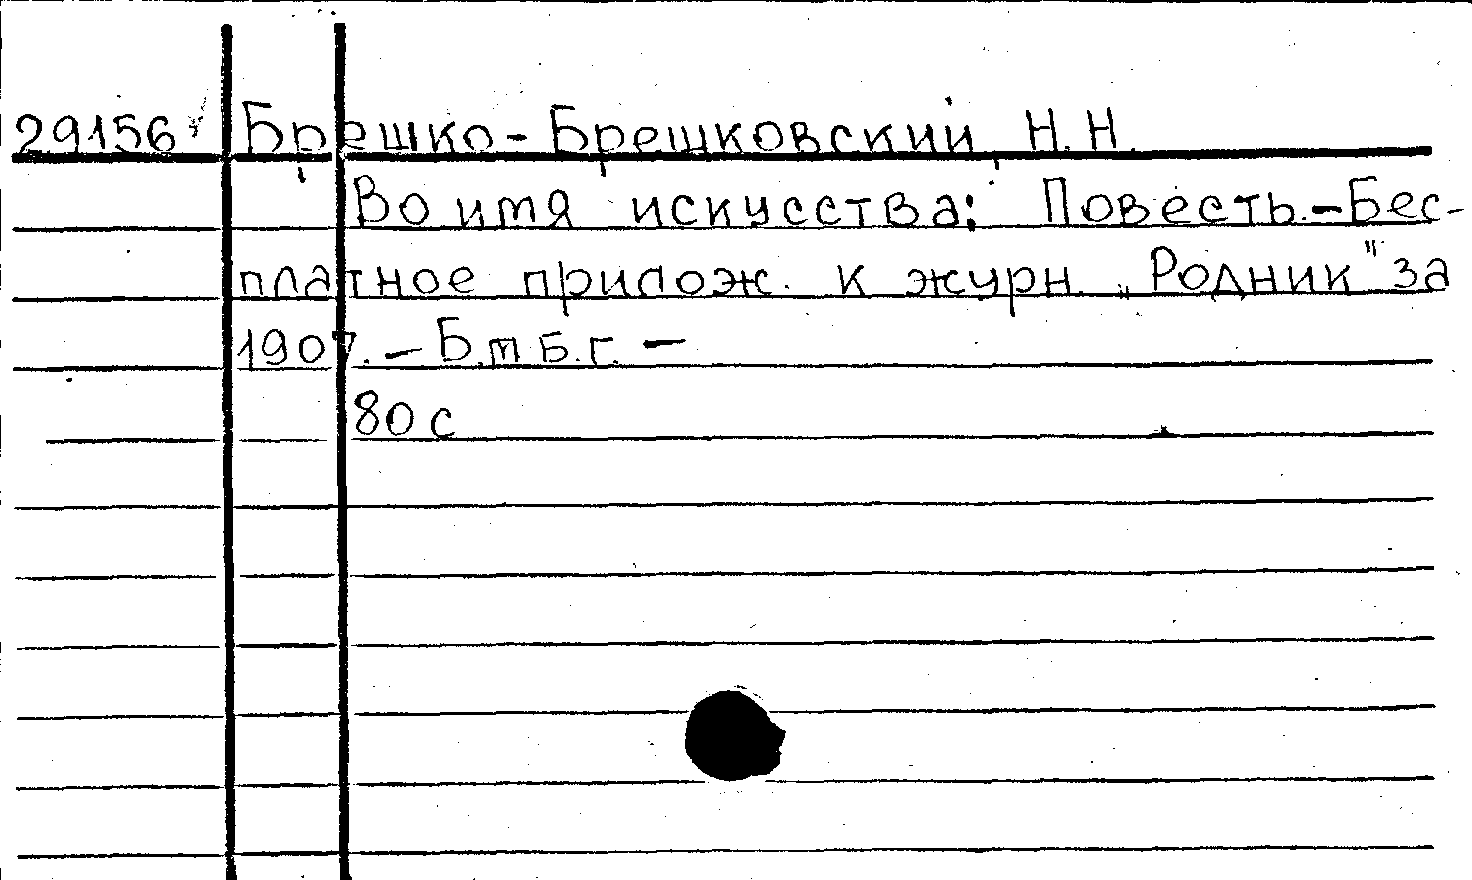 29156 Брешко-Брешковский Н.Н.
Во имя искусства: Повесть.-Бес-
платное прилож. к журн. „Родник" за
1907. - Б.т Б.г. -
80 с